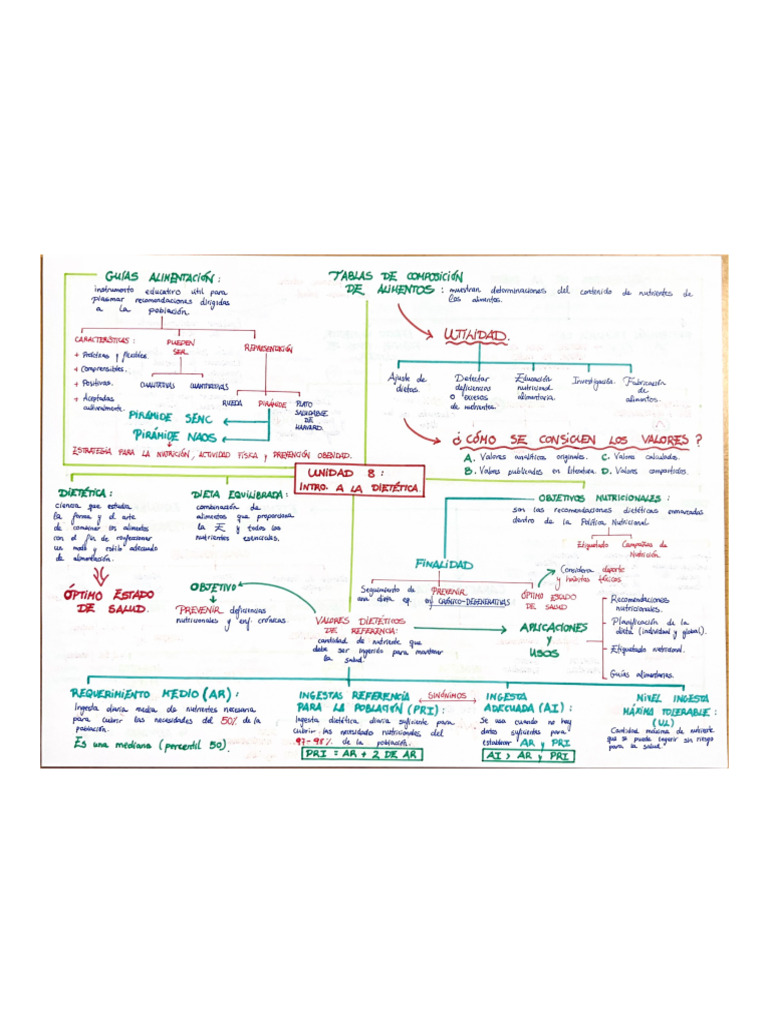 GUÍAS ALIMENTACIÓN:
instrumento educativo útil para
plasmar recomendaciones dirigidas
a la población
CARACTERÍSTICAS:
+ Prácticas y flexibles.
+ Comprensibles.
+ Positivas.
+ Aceptadas
culturalmente.
PUEDEN
SER
CUALITATIVAS
CUANTITATIVAS
REPRESENTACIÓN
RUEDA
PIRÁMIDE
PLATO
SALUDABLE
DE
HARVARD.
PIRÁMIDE SENC
PIRÁMIDE NAOS
ESTRATEGIA PARA LA NUTRICIÓN, ACTIVIDAD FÍSICA Y PREVENCIÓN OBESIDAD.
TABLAS DE COMPOSICIÓN
DE ALIMENTOS: muestran determinaciones del contenido de nutrientes de
los alimentos.
UTILIDAD.
Ajuste de
dietas.
Detectar
deficiencias
o excesos
de nutrientes.
Educación
nutricional
alimentaria.
Investigación.
Fabricación
de
alimentos.
¿CÓMO SE CONSIGUEN LOS VALORES?
A. Valores analíticos originales. C. Valores calculados.
B. Valores publicados en literatura. D. Valores compartidos.
UNIDAD 8:
INTRO. A LA DIETÉTICA.
DIETÉTICA:
ciencia que estudia
la forma y el arte
de combinar los alimentos
con el fin de
un modo y estilo adecuado
de alimentación.
ÓPTIMO ESTADO
DE SALUD.
DIETA EQUILIBRADA:
combinación de
alimentos que proporciona
la E y todos los
nutrientes esenciales.
OBJETIVOS NUTRICIONALES:
son las recomendaciones dietéticas enmarcadas
dentro de la Política Nutricional
Etiquetado
Campañas de
Nutrición
FINALIDAD
Seguimiento de
una dieta eq.
PREVENIR
enf CRÓNICO-DEGENERATIVAS
ÓPTIMO ESTADO
DE SALUD
Considera deporte
y hábitos físicos
OBJETIVO
PREVENIR deficiencias
nutricionales y enf. crónicas.
VALORES DIETÉTICOS
DE REFERENCIA:
cantidad de nutriente que
debe ser ingerido para mantener
la salud.
APLICACIONES
Y
USOS
Recomendaciones
nutricionales.
Planificación de la
dieta (individual y global).
Etiquetado nutricional.
Guías alimentarias.
REQUERIMIENTO MEDIO (AR):
Ingesta diaria media de nutrientes necesaria
para cubrir las necesidades del 50% de la
población.
Es una mediana (percentil 50)
INGESTAS REFERENCIA
PARA LA POBLACIÓN (PRI):
Ingesta dietética diaria suficiente para
cubrir las necesidades nutricionales del
97-98% de la población.
PRI = AR + 2 DE AR
SINÓNIMOS
INGESTA
ADECUADA (AI):
Se usa cuando no hay
datos suficientes para
establecer AR y PRI
AI > AR y PRI
NIVEL INGESTA
MÁXIMA TOLERABLE:
(UL)
Cantidad máxima de nutriente
que se puede ingerir sin riesgo
para la salud.